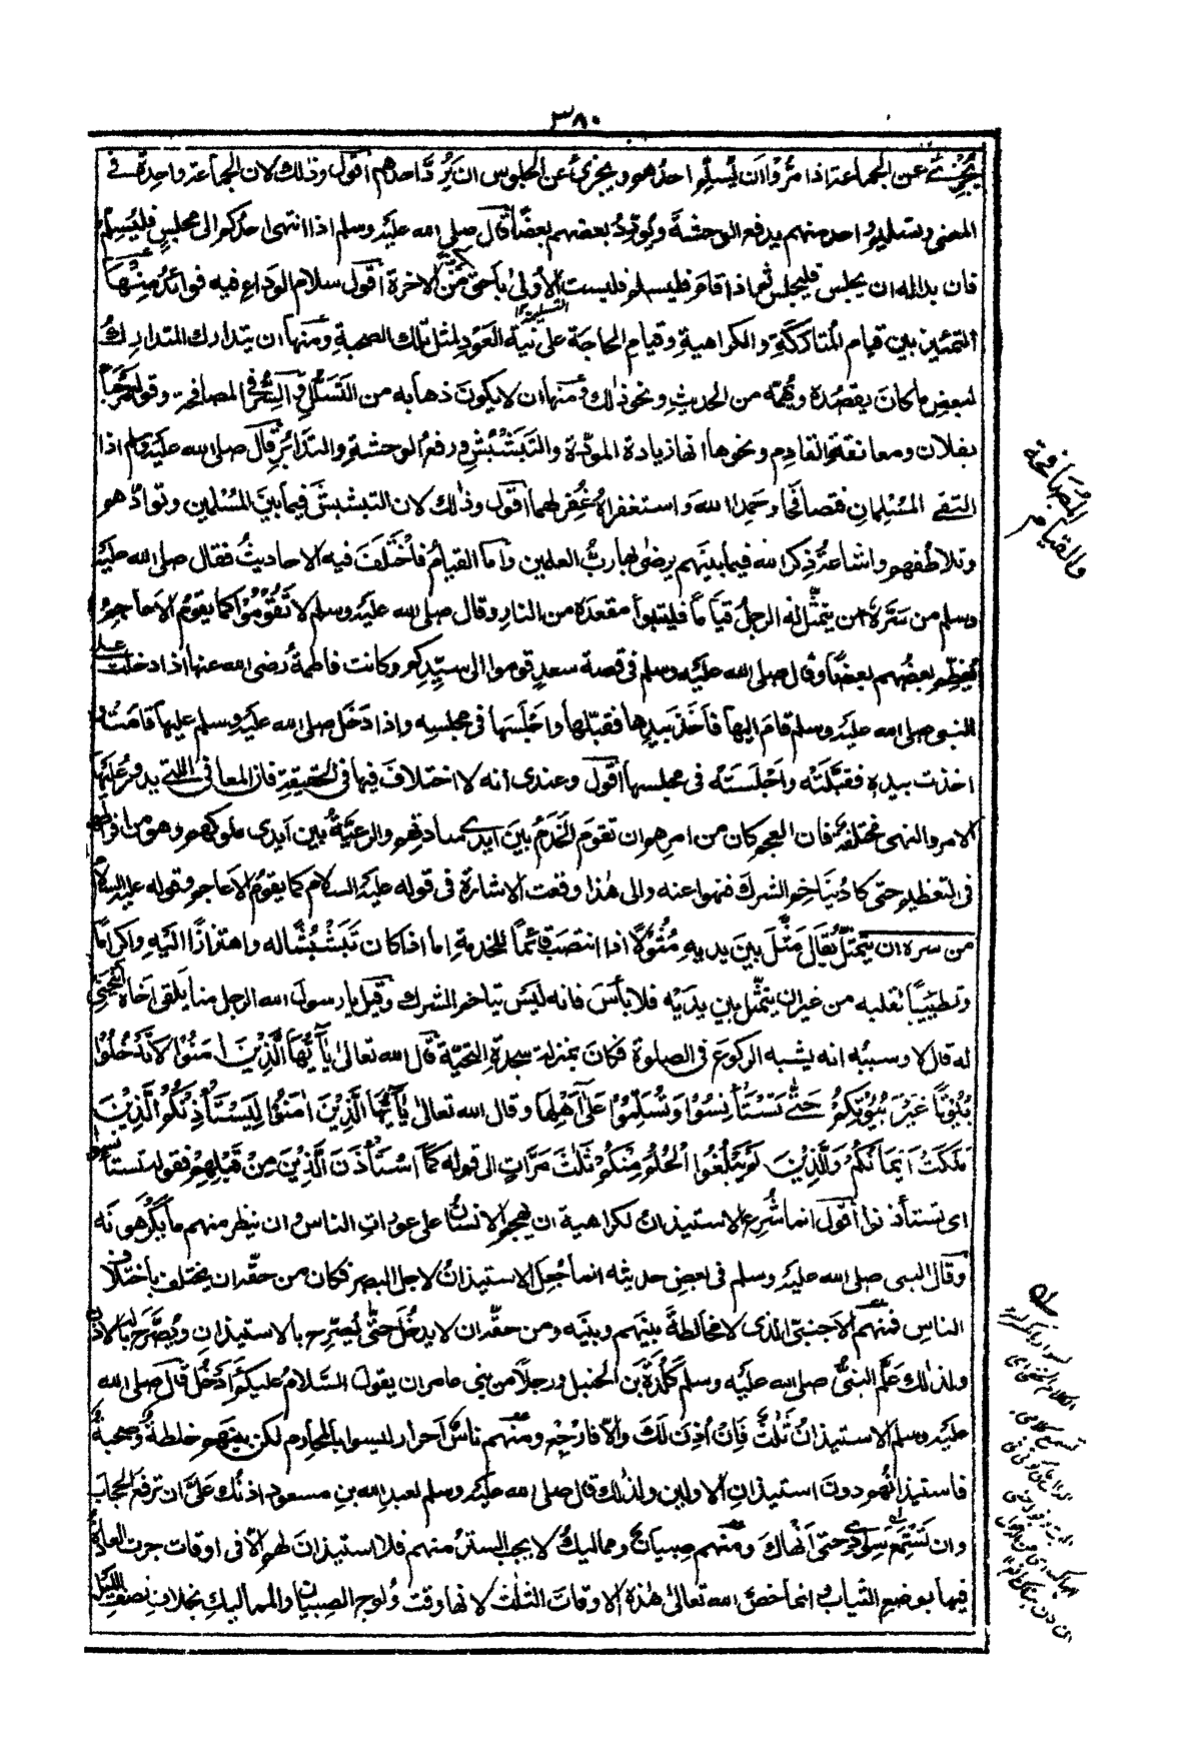 ٣٨٠
يُجْزِئُ عن الجماعة اذا مَرُّوا اَن يُّسلّم احدُهم ويجزئُ عن الجلوس ان يَرُدَّ احدهم اقول وذلك لان الجماعة واحدةٌ في
المعنى وتسليمُ احدٍ منهم يدفع الوحشةَ ويُوَدِّدُ بعضهم بعضًا قال صلى الله عليه وسلم اذا انتهى احدُكم الى مجلسٍ فليُسلِّم
فان بدا له ان يجلس فليجلس ثم اذا قام فليسلم فليست الاُولى باَحقَّ من الاخرة اقول سلام الوداع فيه فوائدُ منها
التمييز بين قيام المُتاركةِ والكراهيةِ وقيامِ الحاجة على نيّة العَودِ لمثل تلك الصحبةِ ومنها ان يتدارك المتدارِكُ
لبعضِ ما كانَ يقصُدُهُ ويُهِمّه من الحديثِ ونحو ذلك ومنها ان لا يكونَ ذهابه من التَسَلُّلِ والسِّرُّ في المصافحة وقوله مَرحَبًا
بفلان ومعانقةِ القادِمِ ونحوها انها زيادة المودّة والتَبَشْبُشِ ورفعُ الوحشةِ والتدابُرِ قال صلى الله عليه وسلم اذا
التقى المُسْلِمانِ فتصافَحَا وحَمِدَا اللهَ واستغفراهُ غُفِرَ لهما اقول وذلك لان التبشبشَ فيما بينَ المُسْلمين وتوادَّهم
وتلاطُفهم واشاعةَ ذِكرِ الله فيما بينَهم يرضى بها ربُّ العلمين واما القيامُ فاختلَفَ فيه الاحاديثُ فقال صلى الله عليه
وسلم من سَرَّهُ ان يتمثّل له الرجلُ قيامًا فليتبوأ مقعدَهُ من النار وقال صلى الله عليه وسلم لا تَقُومُوْا كما يقومُ الاعاجِمُ
يُعظِّم بعضُهم بعضًا وقال صلى الله عليه وسلم في قصة سعدٍ قوموا الى سيِّدِكم وكانت فاطمةُ رضى الله عنها اذا دخلت على
النبى صلى الله عليه وسلم قامَ اليها فاَخَذ بيدِها فقبّلها واَجْلَسَها في مجلسِه واذا دَخَلَ صلى الله عليه وسلم عليها قامَتْ له
اخذت بيدهِ فقبَّلَتْه واَجْلَسَتْه في مجلسها اقول وعندى انه لا اختلافَ فيها في الحقيقةِ فان المعاني التي يدورُ عليها
الامر والنهى مختلفةٌ فان العجم كان من امرهم ان تقومَ الخَدَمُ بينَ اَيدِى سادتِهم والرعيّةُ بين اَيدِى ملوكهم وهو من افراطهم
في التعظيم حتى كاد يُتاخِمُ الشركَ فنهوا عنه والى هذا وقعت الاشارةُ في قوله عليه السلام كما يقومُ الاعاجم وقوله عليه السلام
من سره ان يتمثّل يُقال مَثَلَ بينَ يديهِ مُثُوْلًا اذا انتصَبَ قائمًا للخدمةِ اما اذا كان تَبَشْبُشًا له واهتزازًا اليهِ واكرامًا
وتطييبًا لقلبه من غيرِ ان يتمثّل بين يدَيْه فلا باْسَ فانه ليسَ يتاخم الشركَ وقيل يا رسولَ الله الرجل منا يلقى اخاهُ اينحنى
له قال لا وسببُه انه يشبه الركوعَ في الصلوة فكانَ بمنزلة سجدةِ التحيّة قال الله تعالى يٰاَيُّهَا الَّذِيْنَ اٰمَنُوْا لَا تَدْخُلُوْا
بُيُوْتًا غَيْرَ بُيُوْتِكُمْ حَتّٰى تَسْتَاْنِسُوْا وَتُسَلِّمُوْا عَلٰى اَهْلِهَا وقال الله تعالى يٰاَيُّهَا الَّذِيْنَ اٰمَنُوْا لِيَسْتَاْذِنْكُمُ الَّذِيْنَ
مَلَكَتْ اَيْمَانُكُمْ وَالَّذِيْنَ لَمْ يَبْلُغُوا الْحُلُمَ مِنْكُمْ ثَلٰثَ مَرَّاتٍ الى قوله كَمَا اسْتَاْذَنَ الَّذِيْنَ مِنْ قَبْلِهِمْ فقوله تستانسوا
اى تستأذنوا اقول انما شُرِعَ الاستيذانُ لكراهية ان يهجم الانسانُ على عوراتِ الناس وان ينظر منهم ما يكرهونَه
وقال النبى صلى الله عليه وسلم في بعض حديثه انما جُعِلَ الاستيذانُ لاجل البصر فكان من حقّه ان يختلف باختلاف
الناسِ فمنهم الاَجنبىُّ الذى لا مخالطةَ بينَهم وبينَه ومن حقّه ان لا يدخُلَ حتّى يُصَرِّح بالاستيذانِ ويُصَرَّحَ له بالاذن
ولذلك عَلَّم النبىُّ صلى الله عليه وسلم كَلَدَةَ بن الحنبل ورجلًا من بنى عامر ان يقولَ السَّلامُ عليكم اَاَدْخُلُ قال صلى الله
عليه وسلم الاستيذانُ ثلثٌ فَاِنْ اُذِنَ لَكَ والّا فارْجِعْ ومنهم ناسٌ اَحرار ليسوا بالمحارِم لكن بينهم خلطةٌ وصحبةٌ
فاستيذانُهم دونَ استيذانِ الاولين ولذلك قال صلى الله عليه وسلم لعبدِ الله بنِ مسعود اذنُك عَلَىَّ ان ترفعَ الحجابَ
وان تَسْتَمِعَ سِوادى حتى اَنْهاكَ ومنهم صِبيانٌ ومماليكُ لا يجبُ السترُ منهم فلا استيذانَ لهم الّا في اوقات جرت العادةُ
فيها بوضعِ الثيابِ وانما خصَّ الله تعالى هذهِ الاوقاتَ الثلثَ لانها وقت وُلوجِ الصبيانِ والمماليكِ بخلافِ نصفِ الليل
المُصافحة
والقيام